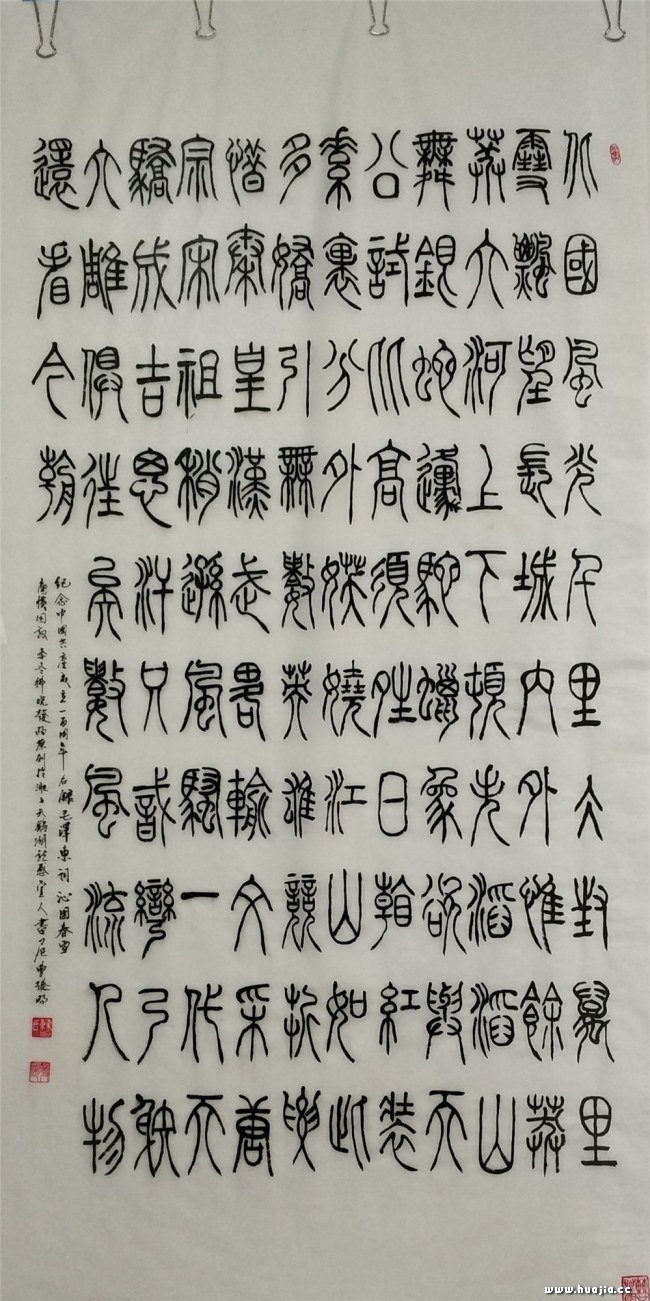 北國風光千里冰封萬里
雪飄望長城內外惟餘莽
莽大河上下頓失滔滔山
舞銀蛇原馳蠟象欲與天
公試比高須晴日看紅裝
素裹分外妖嬈江山如此
多嬌引無數英雄競折腰
惜秦皇漢武略輸文采唐
宗宋祖稍遜風騷一代天
驕成吉思汗只識彎弓射
大雕俱往矣數風流人物
還看今朝
紀念中國共產成立一百周年右錄毛澤東詞沁園春雪
於湘上天鵝湖堂人書
www.huajia.cc